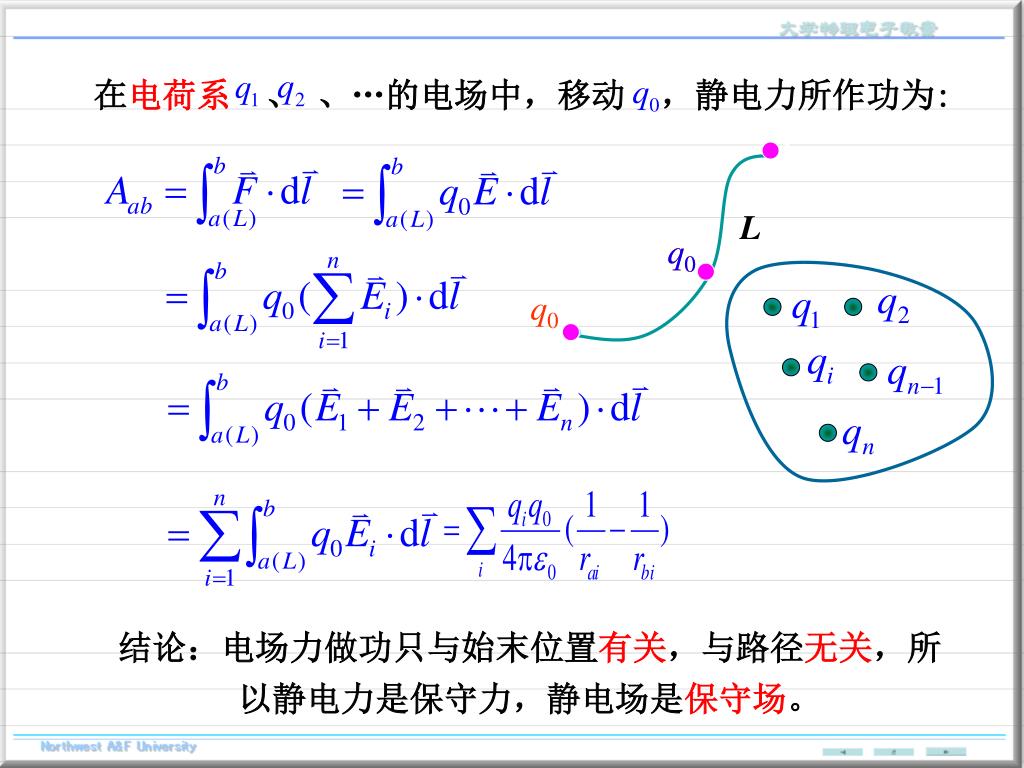 大学物理电子教案
在电荷系 q₁、q₂ 、…的电场中，移动 q₀，静电力所作功为:
A_{ab} = ∫_{a(L)}^{b} F⃗ · dl⃗ = ∫_{a(L)}^{b} q₀E⃗ · dl⃗
= ∫_{a(L)}^{b} q₀(∑_{i=1}^{n} E⃗_i) · dl⃗
= ∫_{a(L)}^{b} q₀(E⃗₁ + E⃗₂ + ⋯ + E⃗_n) · dl⃗
= ∑_{i=1}^{n} ∫_{a(L)}^{b} q₀E⃗_i · dl⃗ = ∑_i \frac{q_i q₀}{4πε₀} (\frac{1}{r_{ai}} − \frac{1}{r_{bi}})
L
q₀
q₀
q₁ q₂
q_i q_{n−1}
q_n
结论：电场力做功只与始末位置有关，与路径无关，所
以静电力是保守力，静电场是保守场。
Northwest A&F University